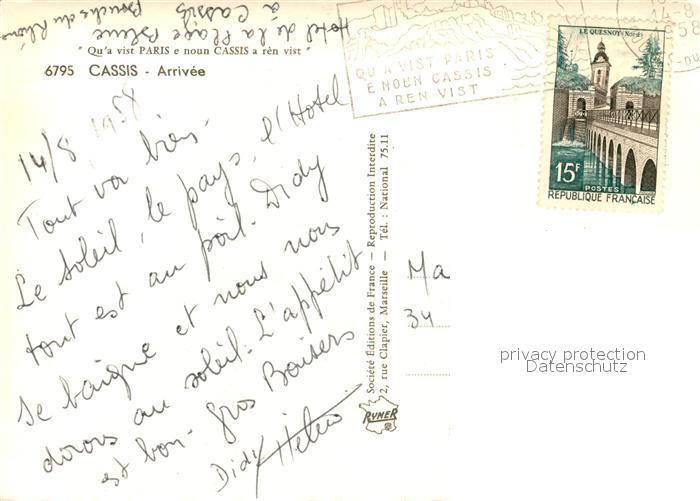 Hotel de la Plage Bleue
à Cassis
Bouches du Rhône
"Qu'a vist PARIS e noun CASSIS a rèn vist"
6795 CASSIS - Arrivée
14/8 1958
Tout va bien.
Le soleil, le pays, l'Hotel
tout est au poil. Didy
se baigne et nous nous
dorons au soleil. L'appétit
est bon. Gros Baisers
Didy Hélène
Société Éditions de France - Reproduction Interdite
2, rue Clapier, Marseille - Tél. : National 75.11
RYNER
QU'A VIST PARIS
E NOUN CASSIS
A REN VIST
14-8
58
LE QUESNOY (Nord)
15F
POSTES
REPUBLIQUE FRANÇAISE
Ma
34
privacy protection
Datenschutz